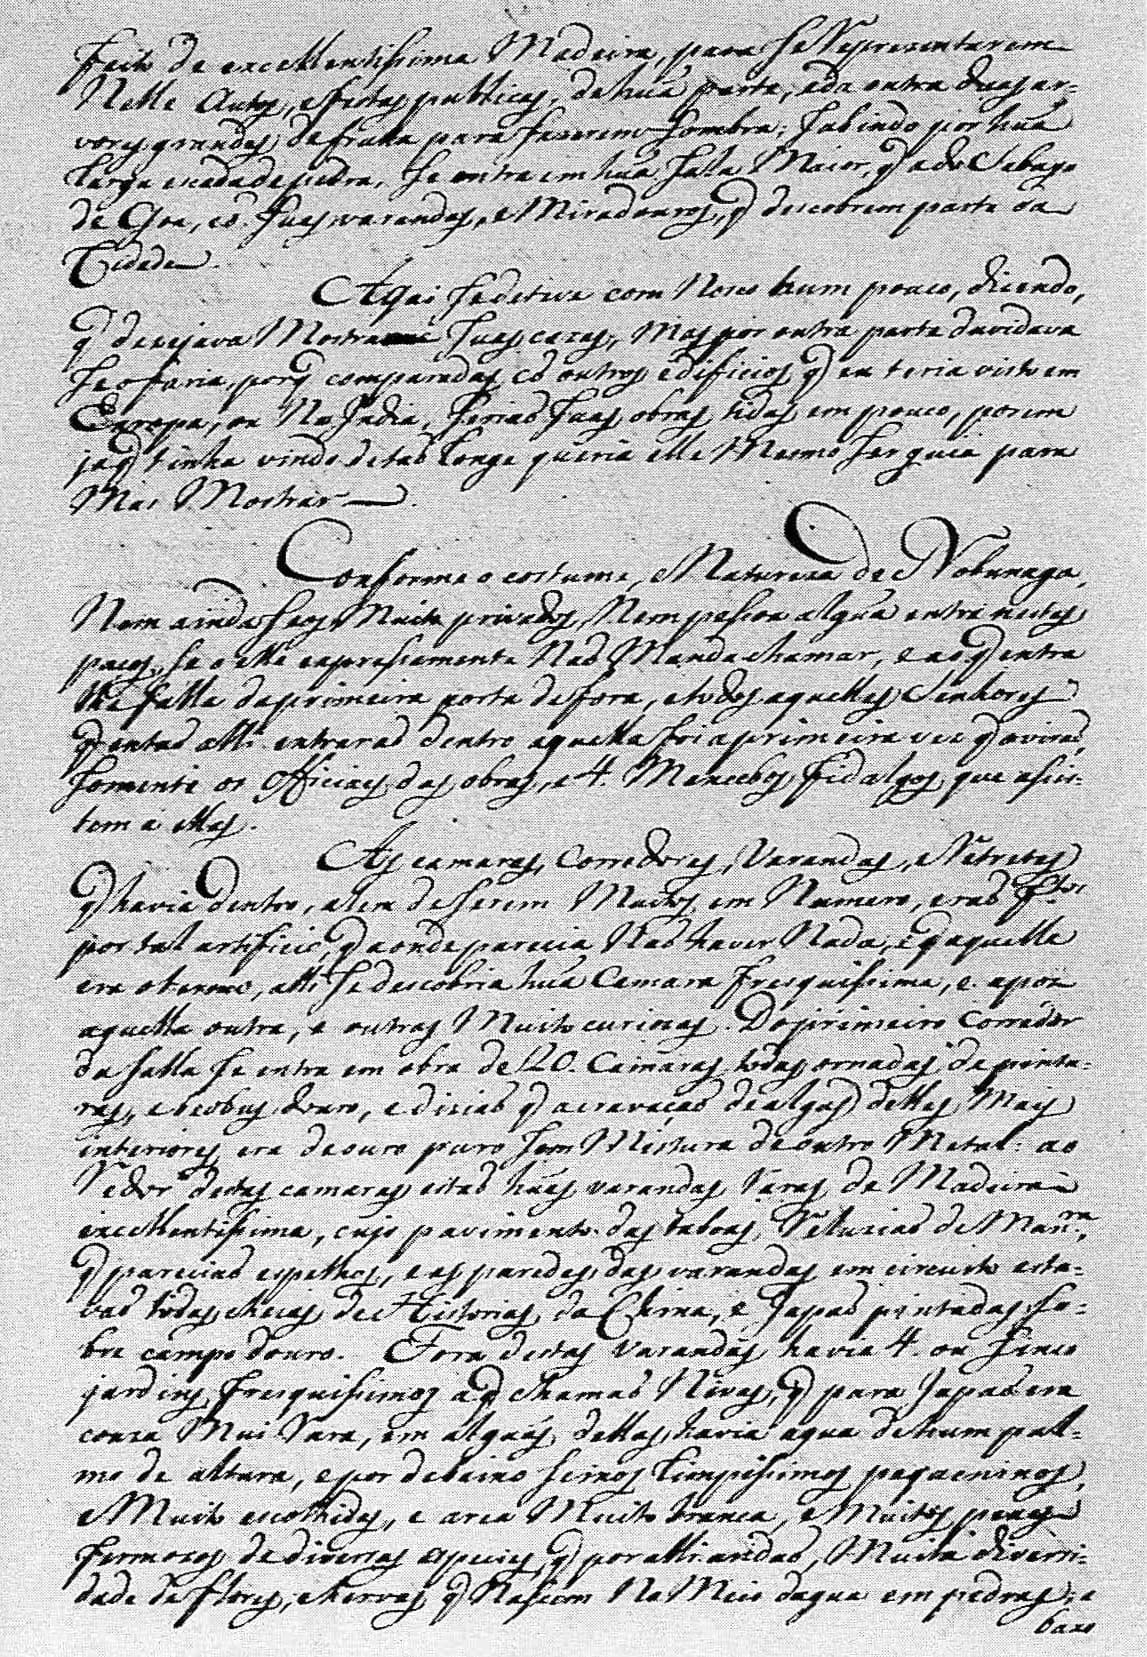 feito de excellentissima Madeira, para se Representarem
Nelle Autos, e festas publicas, de hua parte, e da outra duas ar-
vores grandes de fruta para fazerem sombra; subindo por hua
larga escada de pedra, se entra em hua sala Maior, q̃ a do Sabayo
de Goa, cõ suas varandas, e Miradouros, q̃ descobrem parte da
Cidade.
Aqui se deteve com Nosco hum pouco, dizendo,
q̃ desejava Mostrarme suas cazas, Mas por outra parte duvidava
se o faria, porq̃ comparadas cõ outros edificios q̃ eu teria visto em
Europa, ou Na India, seriaõ suas obras tidas em pouco, porem
ja q̃ tinha vindo de taõ longe queria elle Mesmo ser guia para
Mas Mostrar.
Conforme o costume, e Natureza de Nobunaga,
Nem ainda seos Muito privados, Nem pessoa algũa entra nestes
paços, se o elle expressamente Naõ Manda chamar, e ao q̃ entra
lhe falla da primeira porta de fora, e todos aquelles Senhores
q̃ entaõ alli entraraõ dentro aquella foi a primeira vez q̃ o viraõ,
somente os officiaes das obras, e 4. Mancebos fidalgos, que assis-
tem a ellas.
As camaras, Corredores, Varandas, e Retretes
q̃ havia dentro, alem de serem Muitos em Numero, eraõ f.tos
por tal artificio, q̃ aonde parecia Naõ haver Nada, e q̃ aquelle
era o termo, alli se descobria hua Camara fresquissima, e apoz
aquella outra, e outras Muito curiosas. Do primeiro Corredor
da salla se entra em obra de 20. Camaras, todas ornadas de pintu-
ras, e beobus douro, e diziaõ q̃ a cravaçaõ de algũas dellas Mais
interiores era de ouro puro sem Mistura de outro Metal: ao
Redor destas camaras estaõ hũas varandas Raras de Madeira
excellentissima, cujo pavimento das taboas Reluziaõ de Man.ra,
q̃ pareciaõ espelhos, e as paredes das varandas em circuito esta-
vaõ todas cheias de Historias da China, e Japaõ pintadas so-
bre campo douro. Fora destas varandas havia 4. ou sinco
jardins fresquissimos a q̃ chamaõ Nivas, q̃ para Japaõ era
couza Mui Rara, em alguns dellas havia agua de hum pal-
mo de altura, e por debaixo seixos limpissimos pequeninos,
e Muito escolhidos, e area Muito branca, e Muitos peixes
fermozos de diversas especies, q̃ por alli andaõ, Muita diversi-
dade de flores, e hervas q̃ Nascem No Meio dagua em pedras; e
baxo